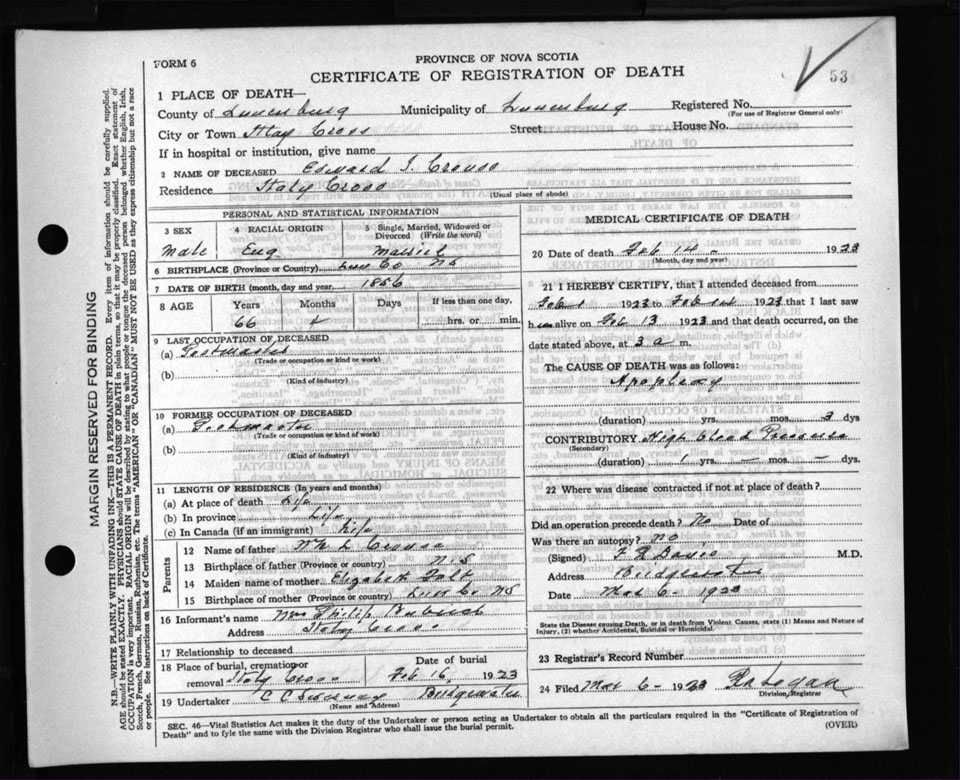 FORM 6
PROVINCE OF NOVA SCOTIA
CERTIFICATE OF REGISTRATION OF DEATH
53
1 PLACE OF DEATH—
County of Lunenburg Municipality of Lunenburg Registered No.
(For use of Registrar General only)
City or Town Italy Cross Street House No.
If in hospital or institution, give name
2 NAME OF DECEASED Edward J. Crouse
Residence Italy Cross
(Usual place of abode)
PERSONAL AND STATISTICAL INFORMATION
3 SEX 4 RACIAL ORIGIN 5 Single, Married, Widowed or Divorced (Write the word)
Male Eng. Married
6 BIRTHPLACE (Province or Country) Lun Co NS
7 DATE OF BIRTH (month, day and year, 1856
8 AGE Years Months Days If less than one day,
66 hrs. or min.
9 LAST OCCUPATION OF DECEASED
(a) Postmaster
(Trade or occupation or kind or work)
(b)
(Kind of industry)
10 FORMER OCCUPATION OF DECEASED
(a) Postmaster
(Trade or occupation or kind of work)
(b)
(Kind of industry)
11 LENGTH OF RESIDENCE (In years and months)
(a) At place of death Life
(b) In province Life
(c) In Canada (if an immigrant) Life
Parents
12 Name of father Wm L Crouse
13 Birthplace of father (Province or country) N.S
14 Maiden name of mother Elizabeth
15 Birthplace of mother (Province or country) Lun Co NS
16 Informant's name Mrs Philip
Address Italy Cross
17 Relationship to deceased
18 Place of burial, cremation or removal Italy Cross Date of burial Feb 16, 1923
19 Undertaker C C Bridgewater
(Name and Address)
MEDICAL CERTIFICATE OF DEATH
20 Date of death Feb 14 1923
(Month, day and year)
21 I HEREBY CERTIFY, that I attended deceased from
Feb 1 1923 to Feb 14 1923 that I last saw
him alive on Feb 13 1923 and that death occurred, on the
date stated above, at 3 a m.
The CAUSE OF DEATH was as follows:
Apoplexy
(duration) yrs. mos. 3 dys
CONTRIBUTORY High Blood Pressure
(Secondary)
(duration) 1 yrs — mos. — dys.
22 Where was disease contracted if not at place of death?
Did an operation precede death? No Date of
Was there an autopsy? no
(Signed) F R Davis M.D.
Address Bridgewater
Date Mar 6 1923
State the Disease causing Death, or in death from Violent Causes, state (1) Means and Nature of Injury, (2) whether Accidental, Suicidal or Homicidal.
23 Registrar's Record Number
24 Filed Mar 6 - 1923
Division Registrar
SEC. 46—Vital Statistics Act makes it the duty of the Undertaker or person acting as Undertaker to obtain all the particulars required in the "Certificate of Registration of
Death" and to fyle the same with the Division Registrar who shall issue the burial permit.
(OVER)
MARGIN RESERVED FOR BINDING
N.B.—WRITE PLAINLY WITH UNFADING INK—THIS IS A PERMANENT RECORD. Every item of information should be carefully supplied.
AGE should be stated EXACTLY. PHYSICIANS should STATE CAUSE OF DEATH in plain terms, so that it may be properly classified. Exact statement of
OCCUPATION is very important. RACIAL ORIGIN will be described by stating to what people or tongue the deceased person belonged whether English, Irish,
Scotch, French, German, Russian, Ruthenian, etc. The terms "AMERICAN" OR "CANADIAN" MUST NOT BE USED as they express citizenship but not a race
or people. See instructions on back of Certificate.